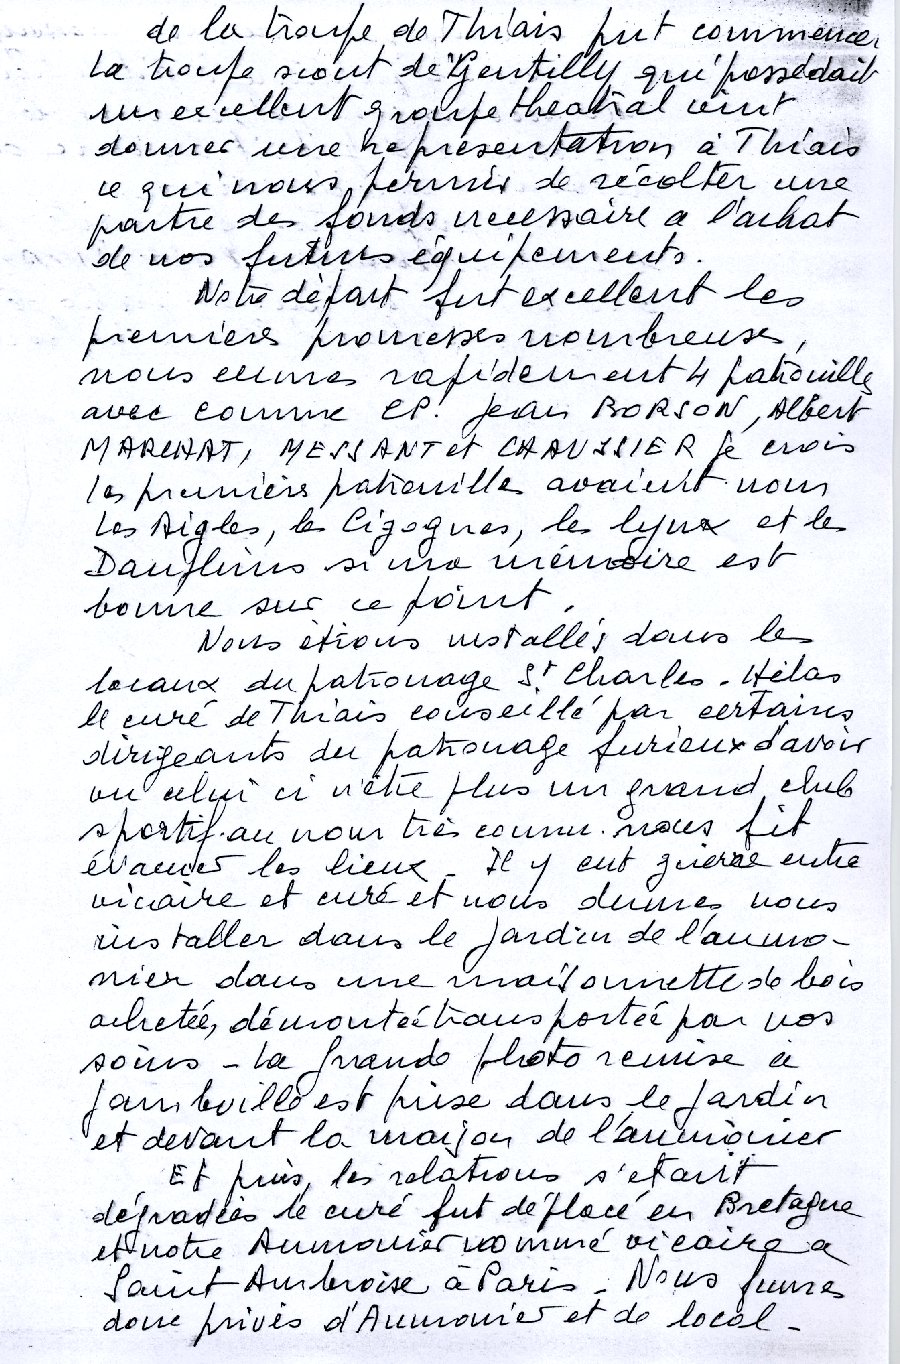 de la troupe de Thiais put commencer
La troupe scout de Gentilly qui possédait
un excellent groupe theatral vint
donner une representation à Thiais
ce qui nous permis de récolter une
partie des fonds necessaire a l'achat
de nos futurs équipements.
Notre départ fut excellent les
premieres promesses nombreuses,
nous eumes rapidement 4 patrouilles
avec comme CP. Jean BORSON, Albert
MARCHAT, MESSANT et CHAUSSIER je crois
les premières patrouilles avaient nom
Les Aigles, les Cigognes, les lynx et les
Dauphins si ma mémoire est
bonne sur ce point.
Nous étions installés dans les
locaux du patronage St Charles - Hélas
le curé de Thiais conseillé par certains
dirigeants du patronage furieux d'avoir
vu celui ci n'être plus un grand club
sportif au nom très connu. nous fit
évacuer les lieux - Il y eut guerre entre
vicaire et curé et nous dumes nous
installer dans le jardin de l'aumo-
nier dans une maisonnette de bois
achetée, démontée transportée par nos
soins - La grande photo remise à
Jambville est prise dans le jardin
et devant la maison de l'aumônier
Et puis, les relations s'étant
dégradées le curé fut déplacé en Bretagne
et notre Aumonier nommé vicaire a
Saint Ambroise à Paris. Nous fumes
donc privés d'Aumonier et de local -